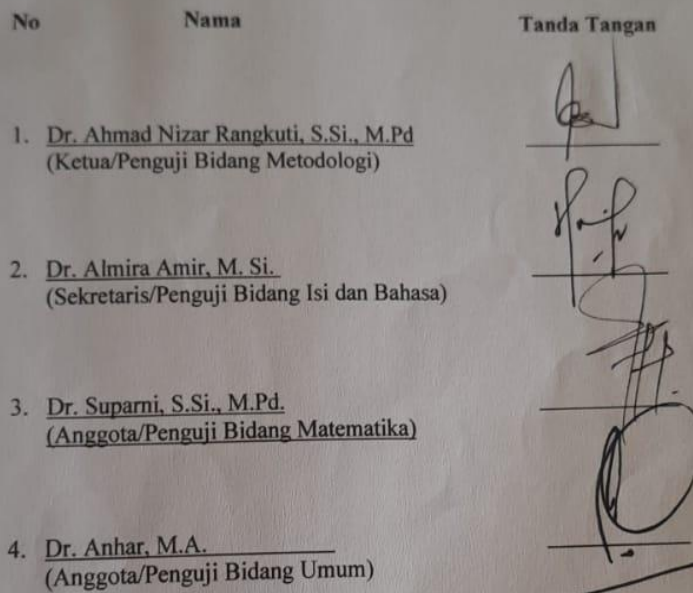 No Nama Tanda Tangan
1. Dr. Ahmad Nizar Rangkuti, S.Si., M.Pd
(Ketua/Penguji Bidang Metodologi)
2. Dr. Almira Amir, M. Si.
(Sekretaris/Penguji Bidang Isi dan Bahasa)
3. Dr. Suparni, S.Si., M.Pd.
(Anggota/Penguji Bidang Matematika)
4. Dr. Anhar, M.A.
(Anggota/Penguji Bidang Umum)